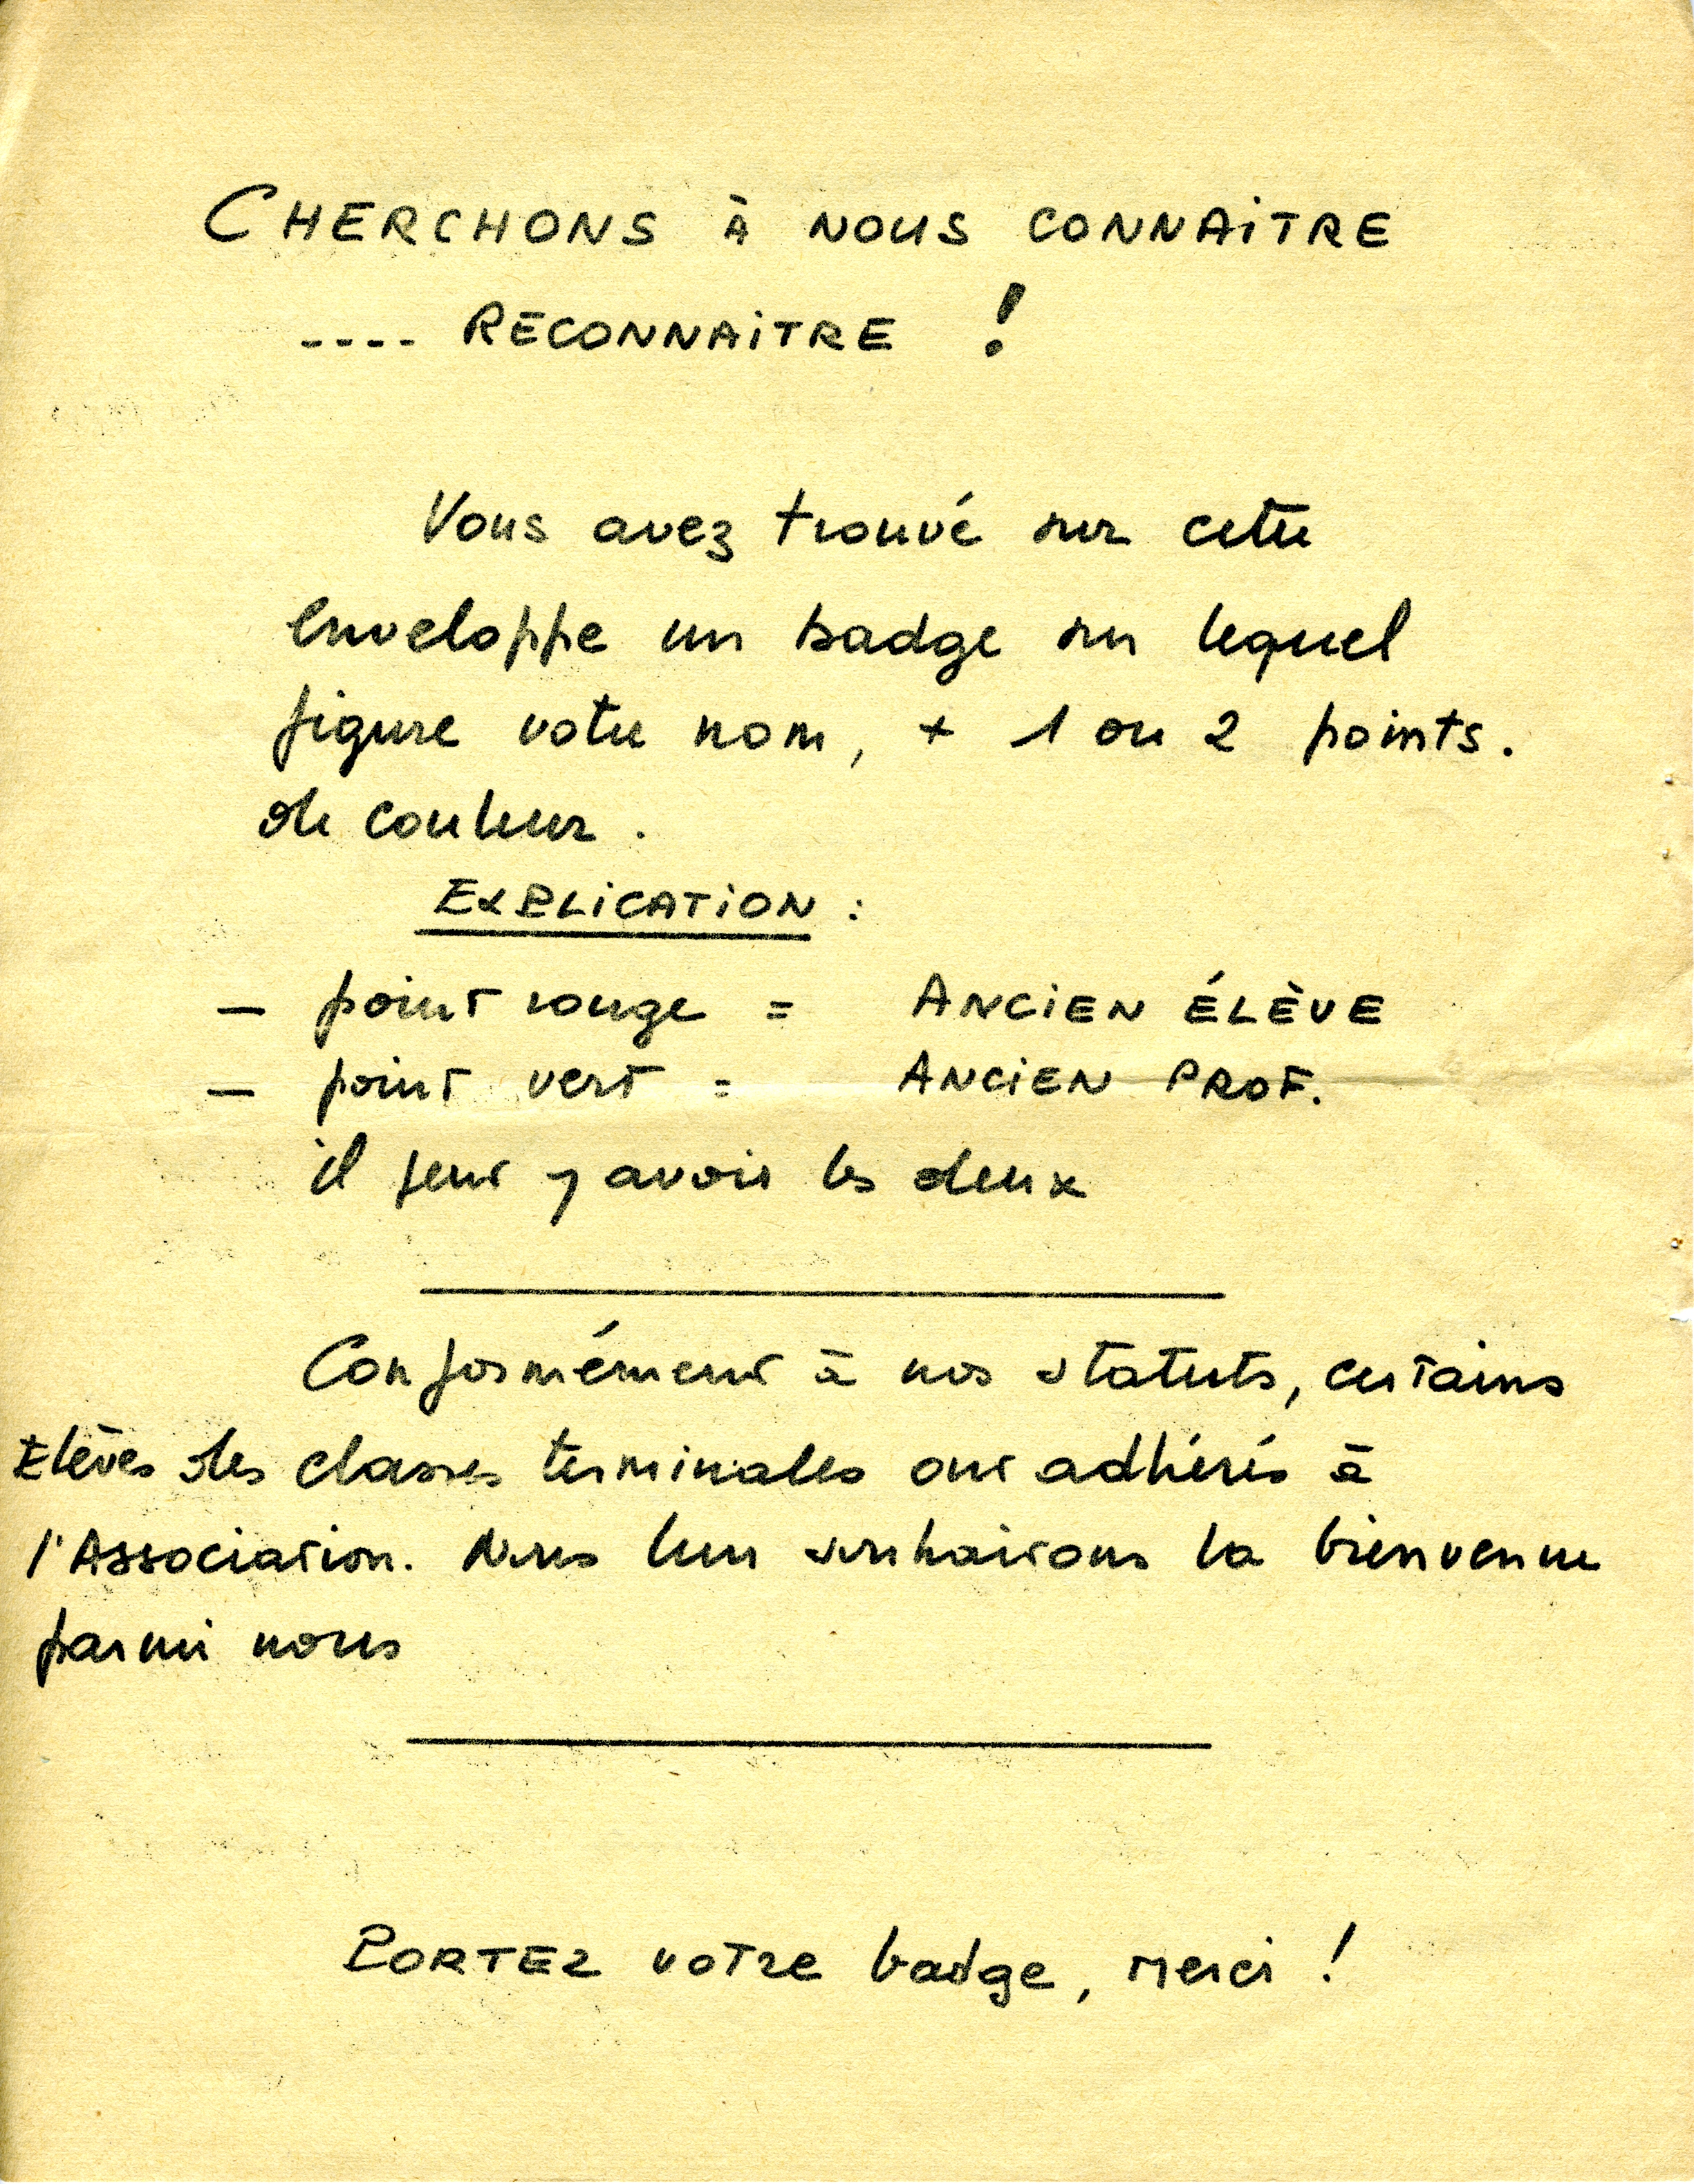 CHERCHONS À NOUS CONNAiTRE
.... RECONNAiTRE !
Vous avez trouvé sur cette
enveloppe un badge sur lequel
figure votre nom, + 1 ou 2 points.
de couleur.
EXPLiCATiON :
– point rouge = ANCiEN ÉLÈVE
– point vert = ANCiEN PROF.
il peut y avoir les deux
Conformément à nos statuts, certains
Elèves des classes terminales ont adhérés à
l'Association. Nous leur souhaitons la bienvenue
parmi nous
PORTEZ votre badge, merci !